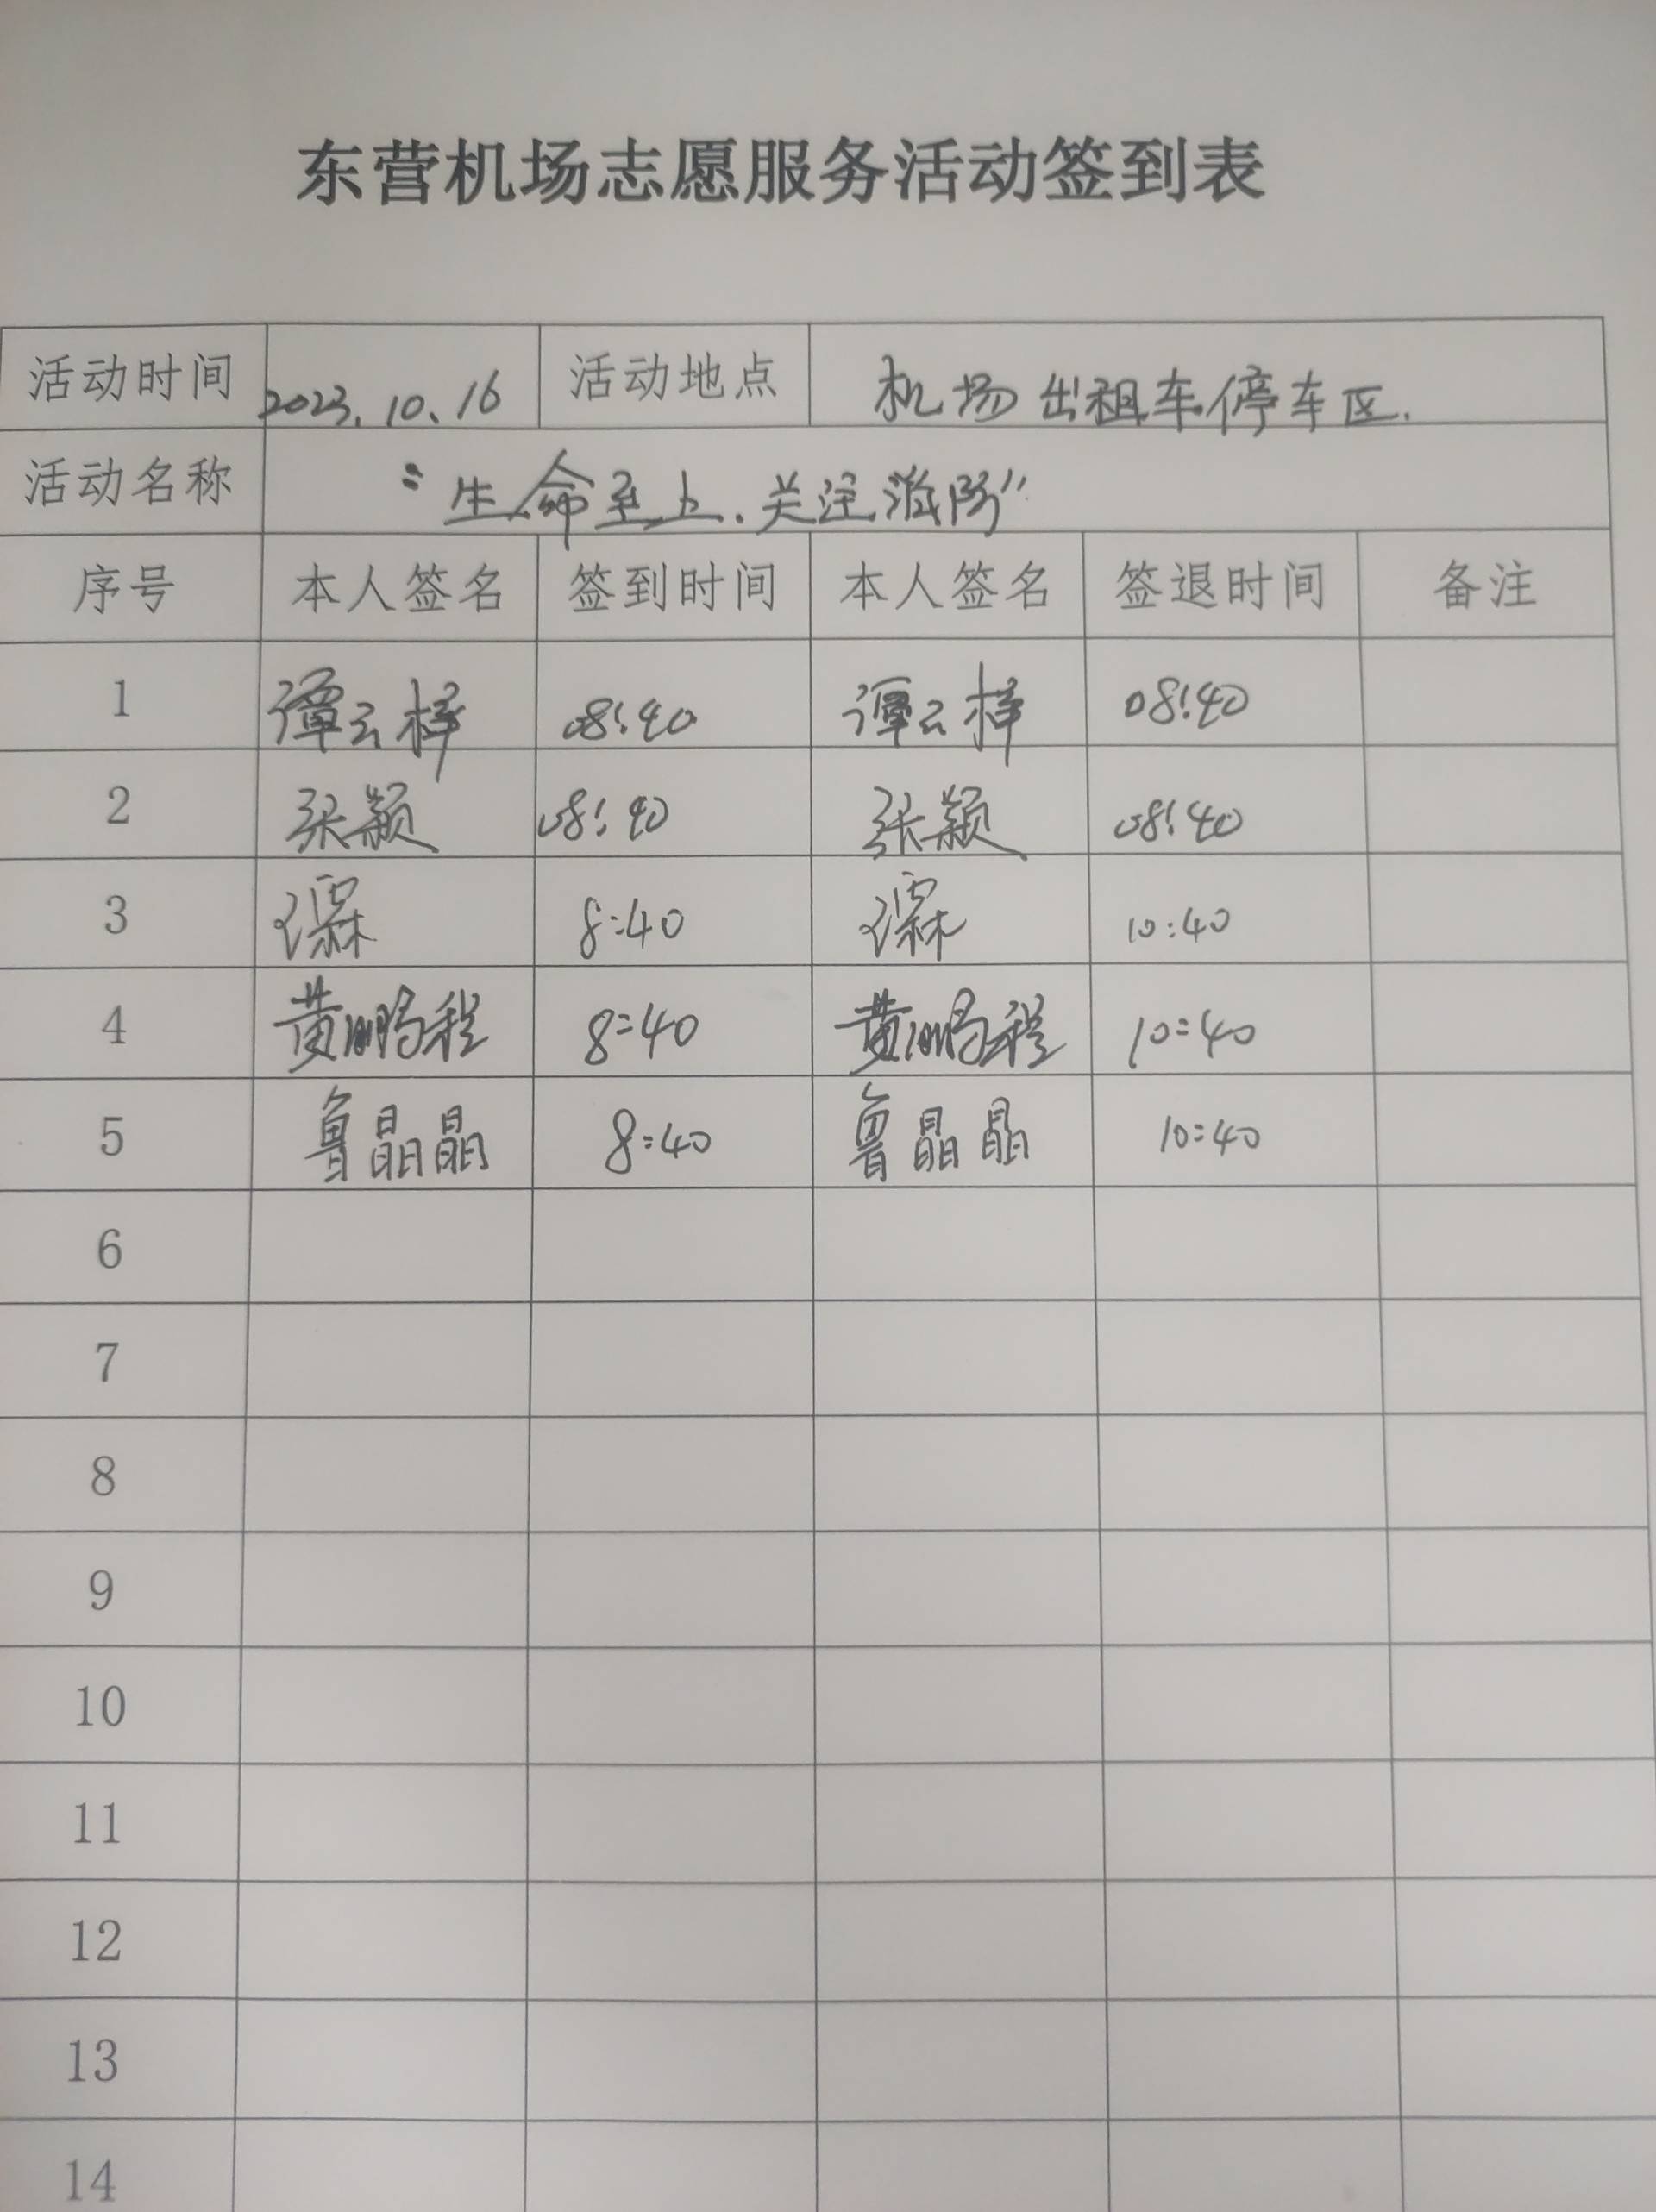 东营机场志愿服务活动签到表
活动时间 2023.10.16 活动地点 机场出租车停车区.
活动名称 “生命至上.关注消防”
序号 本人签名 签到时间 本人签名 签退时间 备注
1 谭云梓 08:40 谭云梓 08:40
2 张颖 08:40 张颖 08:40
3 8:40 10:40
4 黄鹏程 8:40 黄鹏程 10:40
5 鲁晶晶 8:40 鲁晶晶 10:40
6
7
8
9
10
11
12
13
14